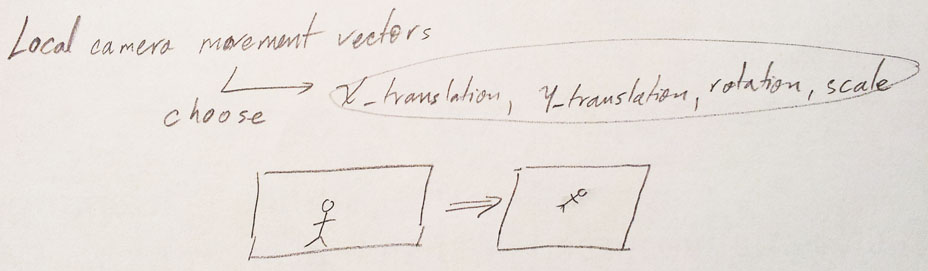 Local camera movement vectors
choose
X_translation, Y_translation, rotation, scale